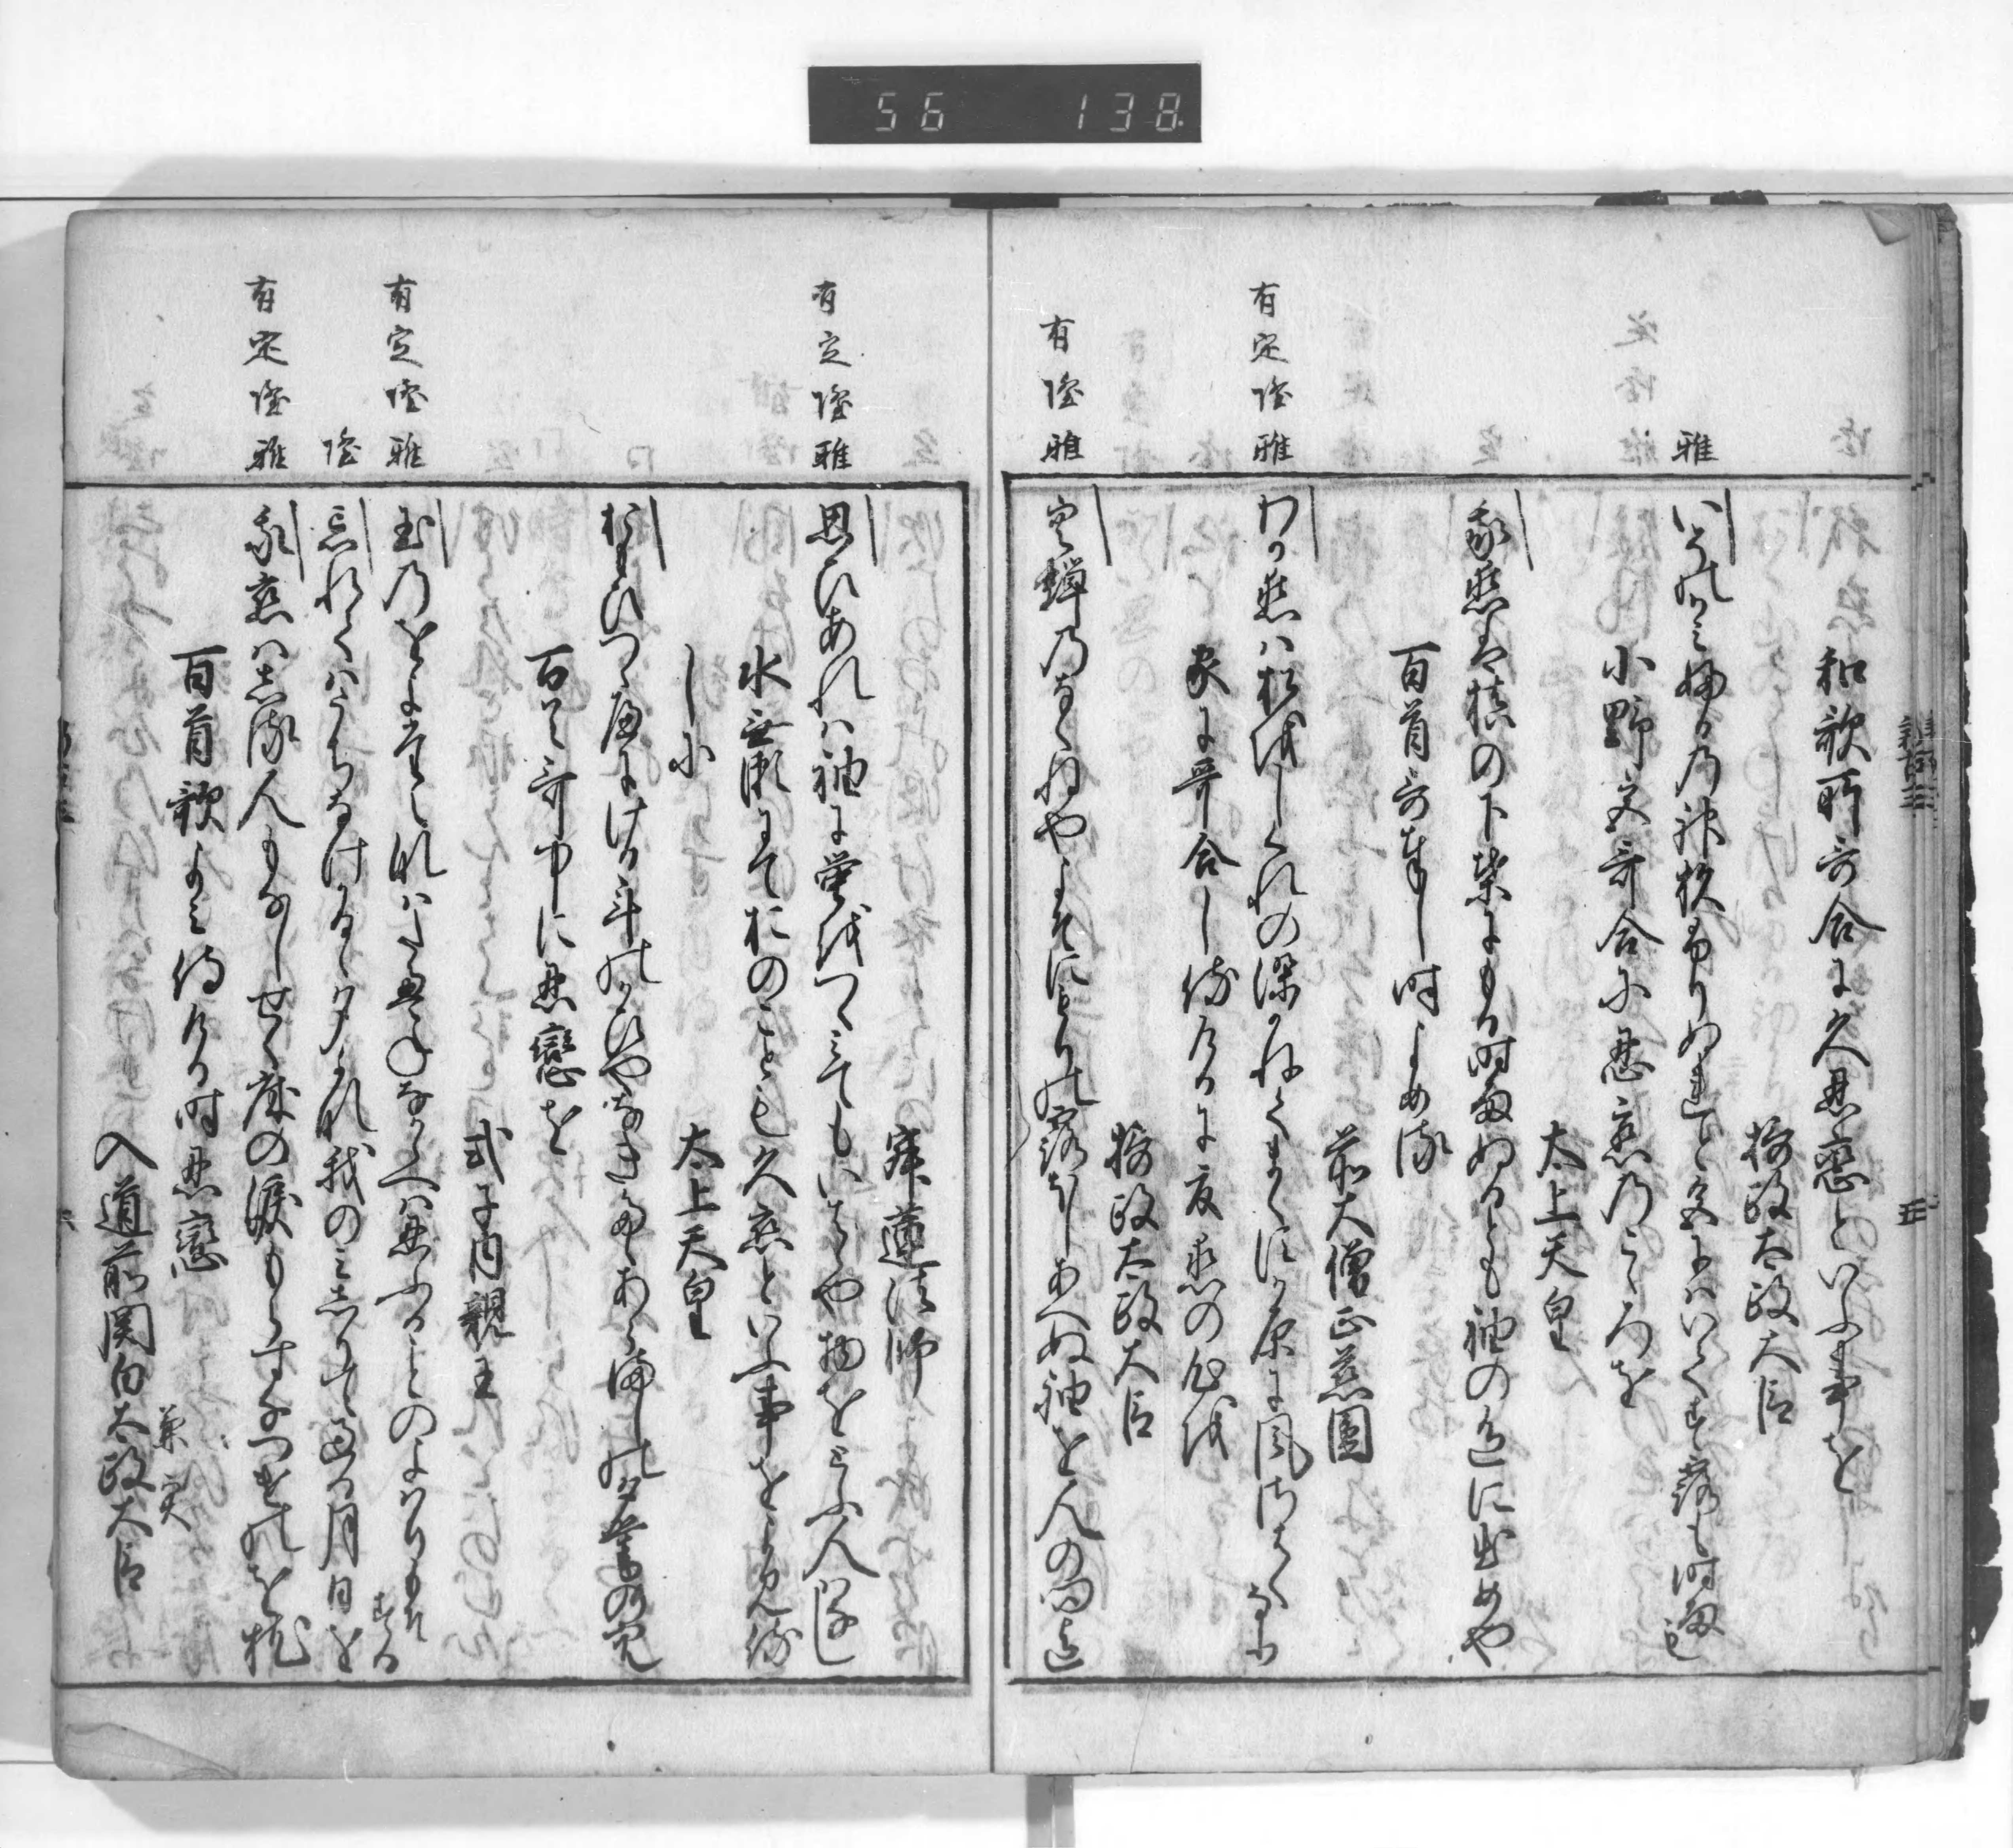 56 138
和歌所哥合に久忍戀といふ事を
摂政太政大臣
雅
いその神ふるの神杉ふりぬれと色にはいてす露も時雨も
小野宮哥合に忍恋のこゝろを
太上天皇
我恋はまきの下葉にもる時雨ぬるとも袖の色に出めや
百首哥奉し時よめる
前大僧正慈圓
有定隆雅
わか恋は松をしくれの染かねてまくすか原に風さはくなり
家に哥合し侍けるに夏恋の心を
摂政太政大臣
有隆雅
空蝉のなくねやよそにもりの露ほしあへぬ袖を人の問迄
新古三
五
寂蓮法師
有定隆雅
思ひあれは袖に蛍をつゝみてもいはゝや物をとふ人はなし
水無瀬にておのことも久恋といふ事をよみ侍
しに
太上天皇
おもひつゝへにける年のかひやなきたゝあらましの夕暮の空
百首哥中に忍戀を
式子内親王
有定隆雅
玉のをよたえなはたえねなからへは忍ふることのよはりもそする
隆
忘れてはうちなけかるゝ夕かな我のみしりて過る月日を
有定隆雅
我恋はしる人もなしせく床の涙もらすなつけのを枕
百首歌よみ侍ける時忍戀
入道前関白太政大臣
兼実